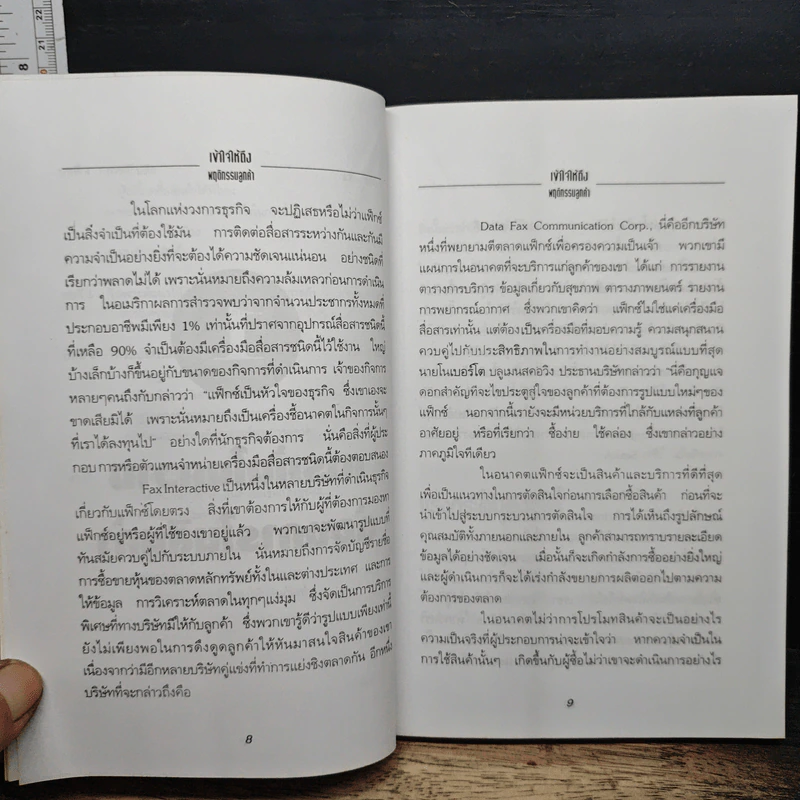 8
21
22
เข้าใจให้ถึง
พฤติกรรมลูกค้า
ในโลกแห่งวงการธุรกิจ จะปฏิเสธหรือไม่ว่าแฟ็กซ์
เป็นสิ่งจำเป็นที่ต้องใช้มัน การติดต่อสื่อสารระหว่างกันและกันมี
ความจำเป็นอย่างยิ่งที่จะต้องได้ความชัดเจนแน่นอน อย่างชนิดที่
เรียกว่าพลาดไม่ได้ เพราะนั่นหมายถึงความล้มเหลวก่อนการดำเนิน
การ ในอเมริกาผลการสำรวจพบว่าจากจำนวนประชากรทั้งหมดที่
ประกอบอาชีพมีเพียง 1% เท่านั้นที่ปราศจากอุปกรณ์สื่อสารชนิดนี้
ที่เหลือ 90% จำเป็นต้องมีเครื่องมือสื่อสารชนิดนี้ไว้ใช้งาน ใหญ่
บ้างเล็กบ้างก็ขึ้นอยู่กับขนาดของกิจการที่ดำเนินการ เจ้าของกิจการ
หลายๆคนถึงกับกล่าวว่า “แฟ็กซ์เป็นหัวใจของธุรกิจ ซึ่งเขาเองจะ
ขาดเสียมิได้ เพราะนั่นหมายถึงเป็นเครื่องชี้อนาคตในกิจการนั้นๆ
ที่เราได้ลงทุนไป” อย่างใดที่นักธุรกิจต้องการ นั่นคือสิ่งที่ผู้ประ
กอบการหรือตัวแทนจำหน่ายเครื่องมือสื่อสารชนิดนี้ต้องตอบสนอง
Fax Interactive เป็นหนึ่งในหลายบริษัทที่ดำเนินธุรกิจ
เกี่ยวกับแฟ็กซ์โดยตรง สิ่งที่เขาต้องการให้กับผู้ที่ต้องการมองหา
แฟ็กซ์อยู่หรือผู้ที่ใช้ของเขาอยู่แล้ว พวกเขาจะพัฒนารูปแบบที่
ทันสมัยควบคู่ไปกับระบบภายใน นั่นหมายถึงการจัดบัญชีรายชื่อ
การซื้อขายหุ้นของตลาดหลักทรัพย์ทั้งในและต่างประเทศ และการ
ให้ข้อมูล การวิเคราะห์ตลาดในทุกๆแง่มุม ซึ่งจัดเป็นการบริการ
พิเศษที่ทางบริษัทมีให้กับลูกค้า ซึ่งพวกเขารู้ดีว่ารูปแบบเพียงเท่านี้
ยังไม่เพียงพอในการดึงดูดลูกค้าให้หันมาสนใจสินค้าของเขา
เนื่องจากว่ามีอีกหลายบริษัทคู่แข่งที่ทำการแย่งชิงตลาดกัน อีกหนึ่ง
บริษัทที่จะกล่าวถึงคือ
8
เข้าใจให้ถึง
พฤติกรรมลูกค้า
Data Fax Communication Corp., นี่คืออีกบริษัท
หนึ่งที่พยายามตีตลาดแฟ็กซ์เพื่อครองความเป็นเจ้า พวกเขามี
แผนการในอนาคตที่จะบริการแก่ลูกค้าของเขา ได้แก่ การรายงาน
ตารางการบริการ ข้อมูลเกี่ยวกับสุขภาพ ตารางภาพยนตร์ รายงาน
การพยากรณ์อากาศ ซึ่งพวกเขาคิดว่า แฟ็กซ์ไม่ใช่แค่เครื่องมือ
สื่อสารเท่านั้น แต่ต้องเป็นเครื่องมือที่มอบความรู้ ความสนุกสนาน
ควบคู่ไปกับประสิทธิภาพในการทำงานอย่างสมบูรณ์แบบที่สุด
นายโนเบอร์โต บลูเมนสคอวิง ประธานบริษัทกล่าวว่า “นี่คือกุญแจ
ดอกสำคัญที่จะไขประตูสู่ใจของลูกค้าที่ต้องการรูปแบบใหม่ๆของ
แฟ็กซ์ นอกจากนี้เรายังจะมีหน่วยบริการที่ใกล้กับแหล่งที่ลูกค้า
อาศัยอยู่ หรือที่เรียกว่า ซื้อง่าย ใช้คล่อง ซึ่งเขากล่าวอย่าง
ภาคภูมิใจทีเดียว
ในอนาคตแฟ็กซ์จะเป็นสินค้าและบริการที่ดีที่สุด
เพื่อเป็นแนวทางในการตัดสินใจก่อนการเลือกซื้อสินค้า ก่อนที่จะ
นำเข้าไปสู่ระบบกระบวนการตัดสินใจ การได้เห็นถึงรูปลักษณ์
คุณสมบัติทั้งภายนอกและภายใน ลูกค้าสามารถทราบรายละเอียด
ข้อมูลได้อย่างชัดเจน เมื่อนั้นก็จะเกิดกำลังการซื้ออย่างยิ่งใหญ่
และผู้ดำเนินการก็จะได้เร่งกำลังขยายการผลิตออกไปตามความ
ต้องการของตลาด
ในอนาคตไม่ว่าการโปรโมทสินค้าจะเป็นอย่างไร
ความเป็นจริงที่ผู้ประกอบการน่าจะเข้าใจว่า หากความจำเป็นใน
การใช้สินค้านั้นๆ เกิดขึ้นกับผู้ซื้อไม่ว่าเขาจะดำเนินการอย่างไร
9